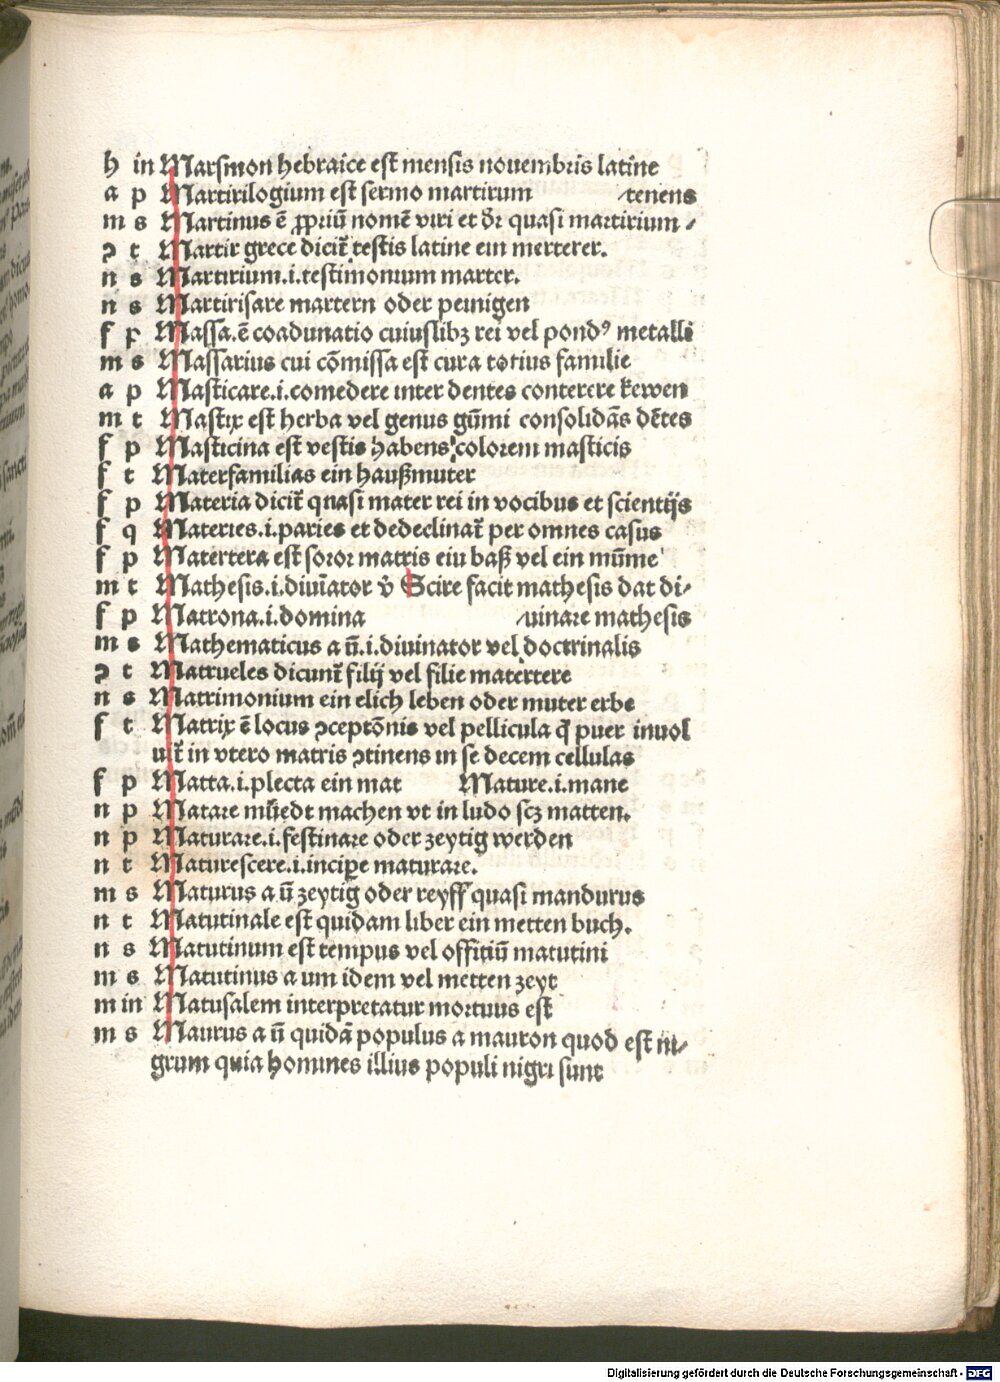 h in Marsmon hebraice est mensis nouembris latine
a p Martirilogium est sermo martirum ⸗tenens
m s Martinus ē ꝓpriū nomē viri et dr̄ quasi martirium⸗
ɔ t Martir grece dicit̄ testis latine ein merterer.
n s Martirium.i.testimonium marter.
n s Martirisare martern oder peinigen
f p Massa.ē coadunatio cuiuslibꝫ rei vel pondꝰ metalli
m s Massarius cui cōmissa est cura totius familie
a p Masticare.i.comedere inter dentes conterere kewen
m t Mastix est herba vel genus gūmi consolidās dētes
f p Masticina est vestis habens colorem masticis
f t Materfamilias ein haußmuter
f p Materia dicit̄ quasi mater rei in vocibus et scientijs
f q Materies.i.paries et dedeclinat̄ per omnes casus
f p Matertera est soror matris eiu baß vel ein mūme
m t Mathesis.i.diuīator v̄ Scire facit mathesis dat di⸗
f p Matrona.i.domina ⸗uinare mathesis
m s Mathematicus a ū.i.diuinator vel doctrinalis
ɔ t Matrueles dicunt̄ filij vel filie matertere
n s Matrimonium ein elich leben oder muter erbe
f t Matrix ē locus ɔceptōnis vel pellicula q̄ puer inuol
uit̄ in vtero matris ɔtinens in se decem cellulas
f p Matta.i.plecta ein mat Mature.i.mane
n p Matare müedt machen vt in ludo scꝫ matten.
n p Maturare.i.festinare oder zeytig werden
n t Maturescere.i.incipe maturare.
m s Maturus a ū zeytig oder reyff quasi mandurus
n t Matutinale est quidam liber ein metten buch.
n s Matutinum est tempus vel offitiū matutini
m s Matutinus a um idem vel metten zeyt
m in Matusalem interpretatur mortuus est
m s Maurus a ū quidā populus a mauron quod est ni⸗
grum quia homines illius populi nigri sunt
Digitalisierung gefördert durch die Deutsche Forschungsgemeinschaft - DFG